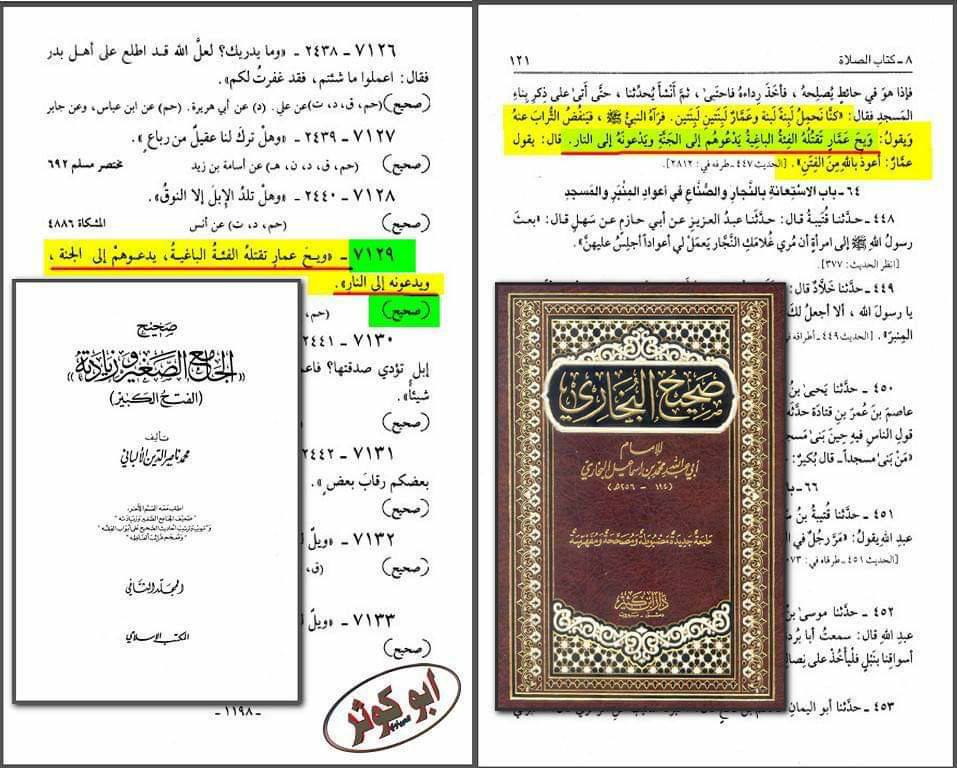 ٧١٢٦ - ٢٤٣٨ - «وما يدريك؟ لعلَّ الله قد اطلع على أهل بدر
فقال: اعملوا ما شئتم، فقد غفرتُ لكم».
(صحيح) (حم، ق، د، ت) عن علي. (د) عن أبي هريرة. (حم) عن ابن عباس، وعن جابر
٧١٢٧ - ٢٤٣٩ - «وهل تركَ لنا عقيلٌ من رباعٍ».
(صحيح) (حم، ق، د، ن، هـ) عن أسامة بن زيد مختصر مسلم ٦٩٢
٧١٢٨ - ٢٤٤٠ - «وهل تلدُ الإبلَ إلا النوقُ».
(صحيح) (حم، د، ت) عن أنس المشكاة ٤٨٨٦
٧١٢٩ - «ويحَ عمارٍ تقتلهُ الفئةُ الباغيةُ، يدعوهمْ إلى الجنة،
ويدعونه إلى النار».
(صحيح) (حم،
٧١٣٠ - ٢٤٤١ -
إبل تؤدي صدقتها؟ فاعم
شيئاً».
(صحيح)
٧١٣١ - ٢٤٤٢ -
بعضكم رقابَ بعضٍ».
(صحيح)
٧١٣٢ - «ويلٌ
(صحيح) (ق،
٧١٣٣ - «ويلٌ
(صحيح)
- ١١٩٨ -
صحيح
«الجامع الصغير وزيادته»
(الفتح الكبير)
تأليف
محمد ناصر الدين الألباني
المجلد الثاني
المكتب الإسلامي
ابو كوثر
٨ - كتاب الصلاة ١٢١
فإذا هوَ في حائطٍ يُصلِحهُ، فأخَذَ رِداءهُ فاحتبىٰ، ثمَّ أنْشأ يُحدِّثنا، حتَّى أتى على ذِكرِ بِناءِ
المسجدِ فقال: «كنَّا نَحمِلُ لَبِنةً لَبِنة وعمَّارٌ لَبِنتَينِ لَبِنتَين. فرآهُ النبيُّ ﷺ، فيَنفُضُ التُّرابَ عنهُ
ويَقولُ: وَيحَ عمَّارٍ تَقتُلُهُ الفِئةُ الباغيةُ يَدْعُوهُم إلى الجنَّةِ ويَدْعُونَهُ إلى النار. قال: يقول
عمَّارٌ: أعوذُ باللهِ مِنَ الفِتَنِ». [الحديث ٤٤٧ ـ طرفه في: ٢٨١٢].
٦٤ - باب الاسْتِعانةِ بالنَّجارِ والصُّنَّاعِ في أعوادِ المِنْبَرِ والمَسجدِ
٤٤٨ - حدَّثنا قُتَيبةُ قال: حدَّثَنا عبدُ العزيزِ عن أبي حازمٍ عن سَهلٍ قال: «بعثَ
رسولُ اللهِ ﷺ إلى امرأةٍ أن مُري غُلامَكِ النَّجَّارَ يَعمَلْ لي أعواداً أجلِسُ عليهنَّ».
[انظر الحديث: ٣٧٧].
٤٤٩ - حدَّثَنا خَلَّادٌ قال:
يا رسولَ الله، ألا أجعلُ لكَ
المِنبرَ». [الحديث ٤٤٩ ـ أطرافه في
٤٥٠ - حدَّثَنا يَحيىٰ بنُ
عاصمَ بنَ عُمرَ بنِ قتادة حدَّثَه
قولِ الناسِ فيهِ حِينَ بَنىٰ مَسجِد
«مَنْ بَنىٰ مسجداً ـ قال بُكيرٌ:
٦٦ - ب
٤٥١ - حدَّثَنا قُتيبةُ بنُ
عبدِ اللهِ يقولُ: «مَرَّ رجُلٌ في ال
[الحديث ٤٥١ ـ طرفاه في: ٧٣
٤٥٢ - حدَّثَنا موسىٰ بنُ
عبدِ اللهِ قال: سمعتُ أبا بُرد
أسواقِنا بنَبْلٍ فلْيأخُذْ على نِصالِ
٤٥٣ - حدَّثَنا أبو اليمانِ
صحيح البخاري
للإمام
أبي عبد الله محمد بن إسماعيل البخاري
طبعة جديدة مضبوطة ومصححة ومفهرسة
دار ابن كثير
دمشق - بيروت